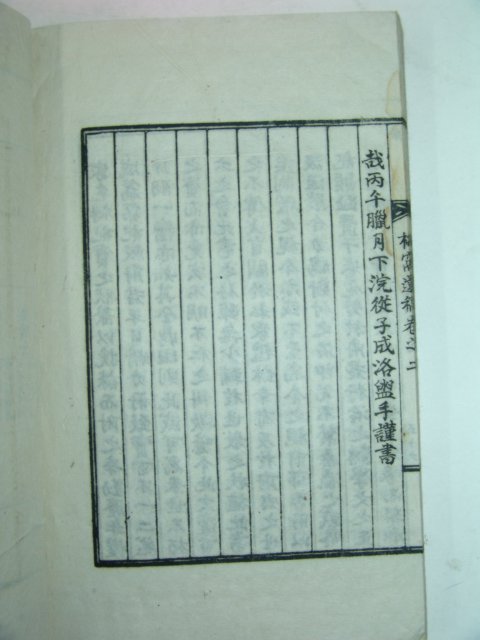 哉丙午臘月下浣從子成洛盥手謹書
窩遺稿卷之二